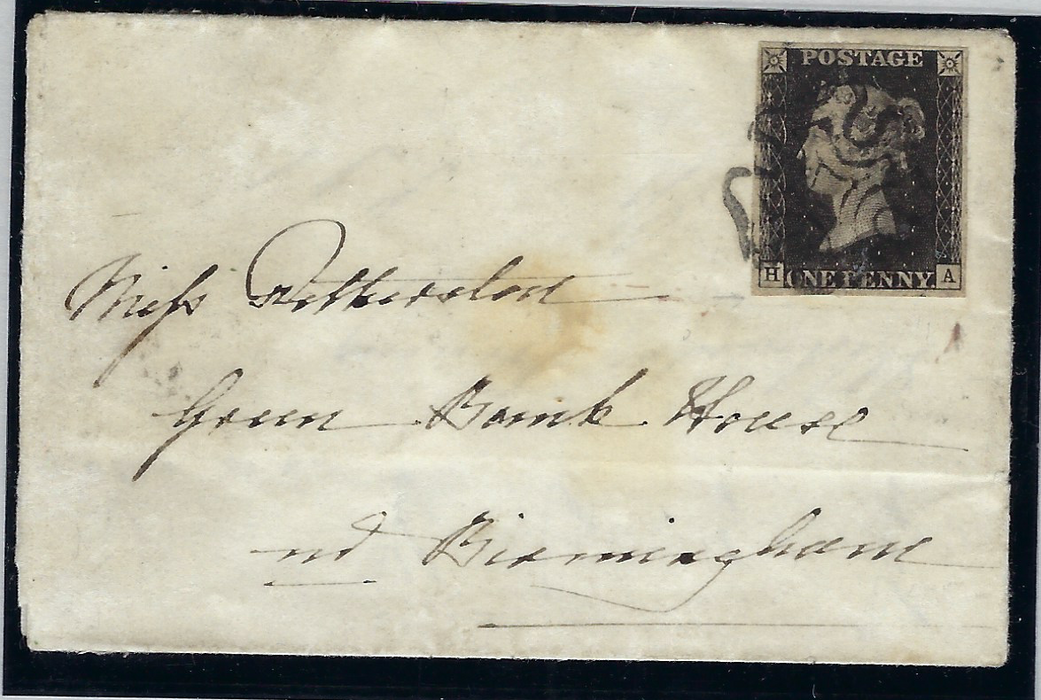 POSTAGE
H ONE PENNY. A
Miss
Green Bank House
nr Birmingham